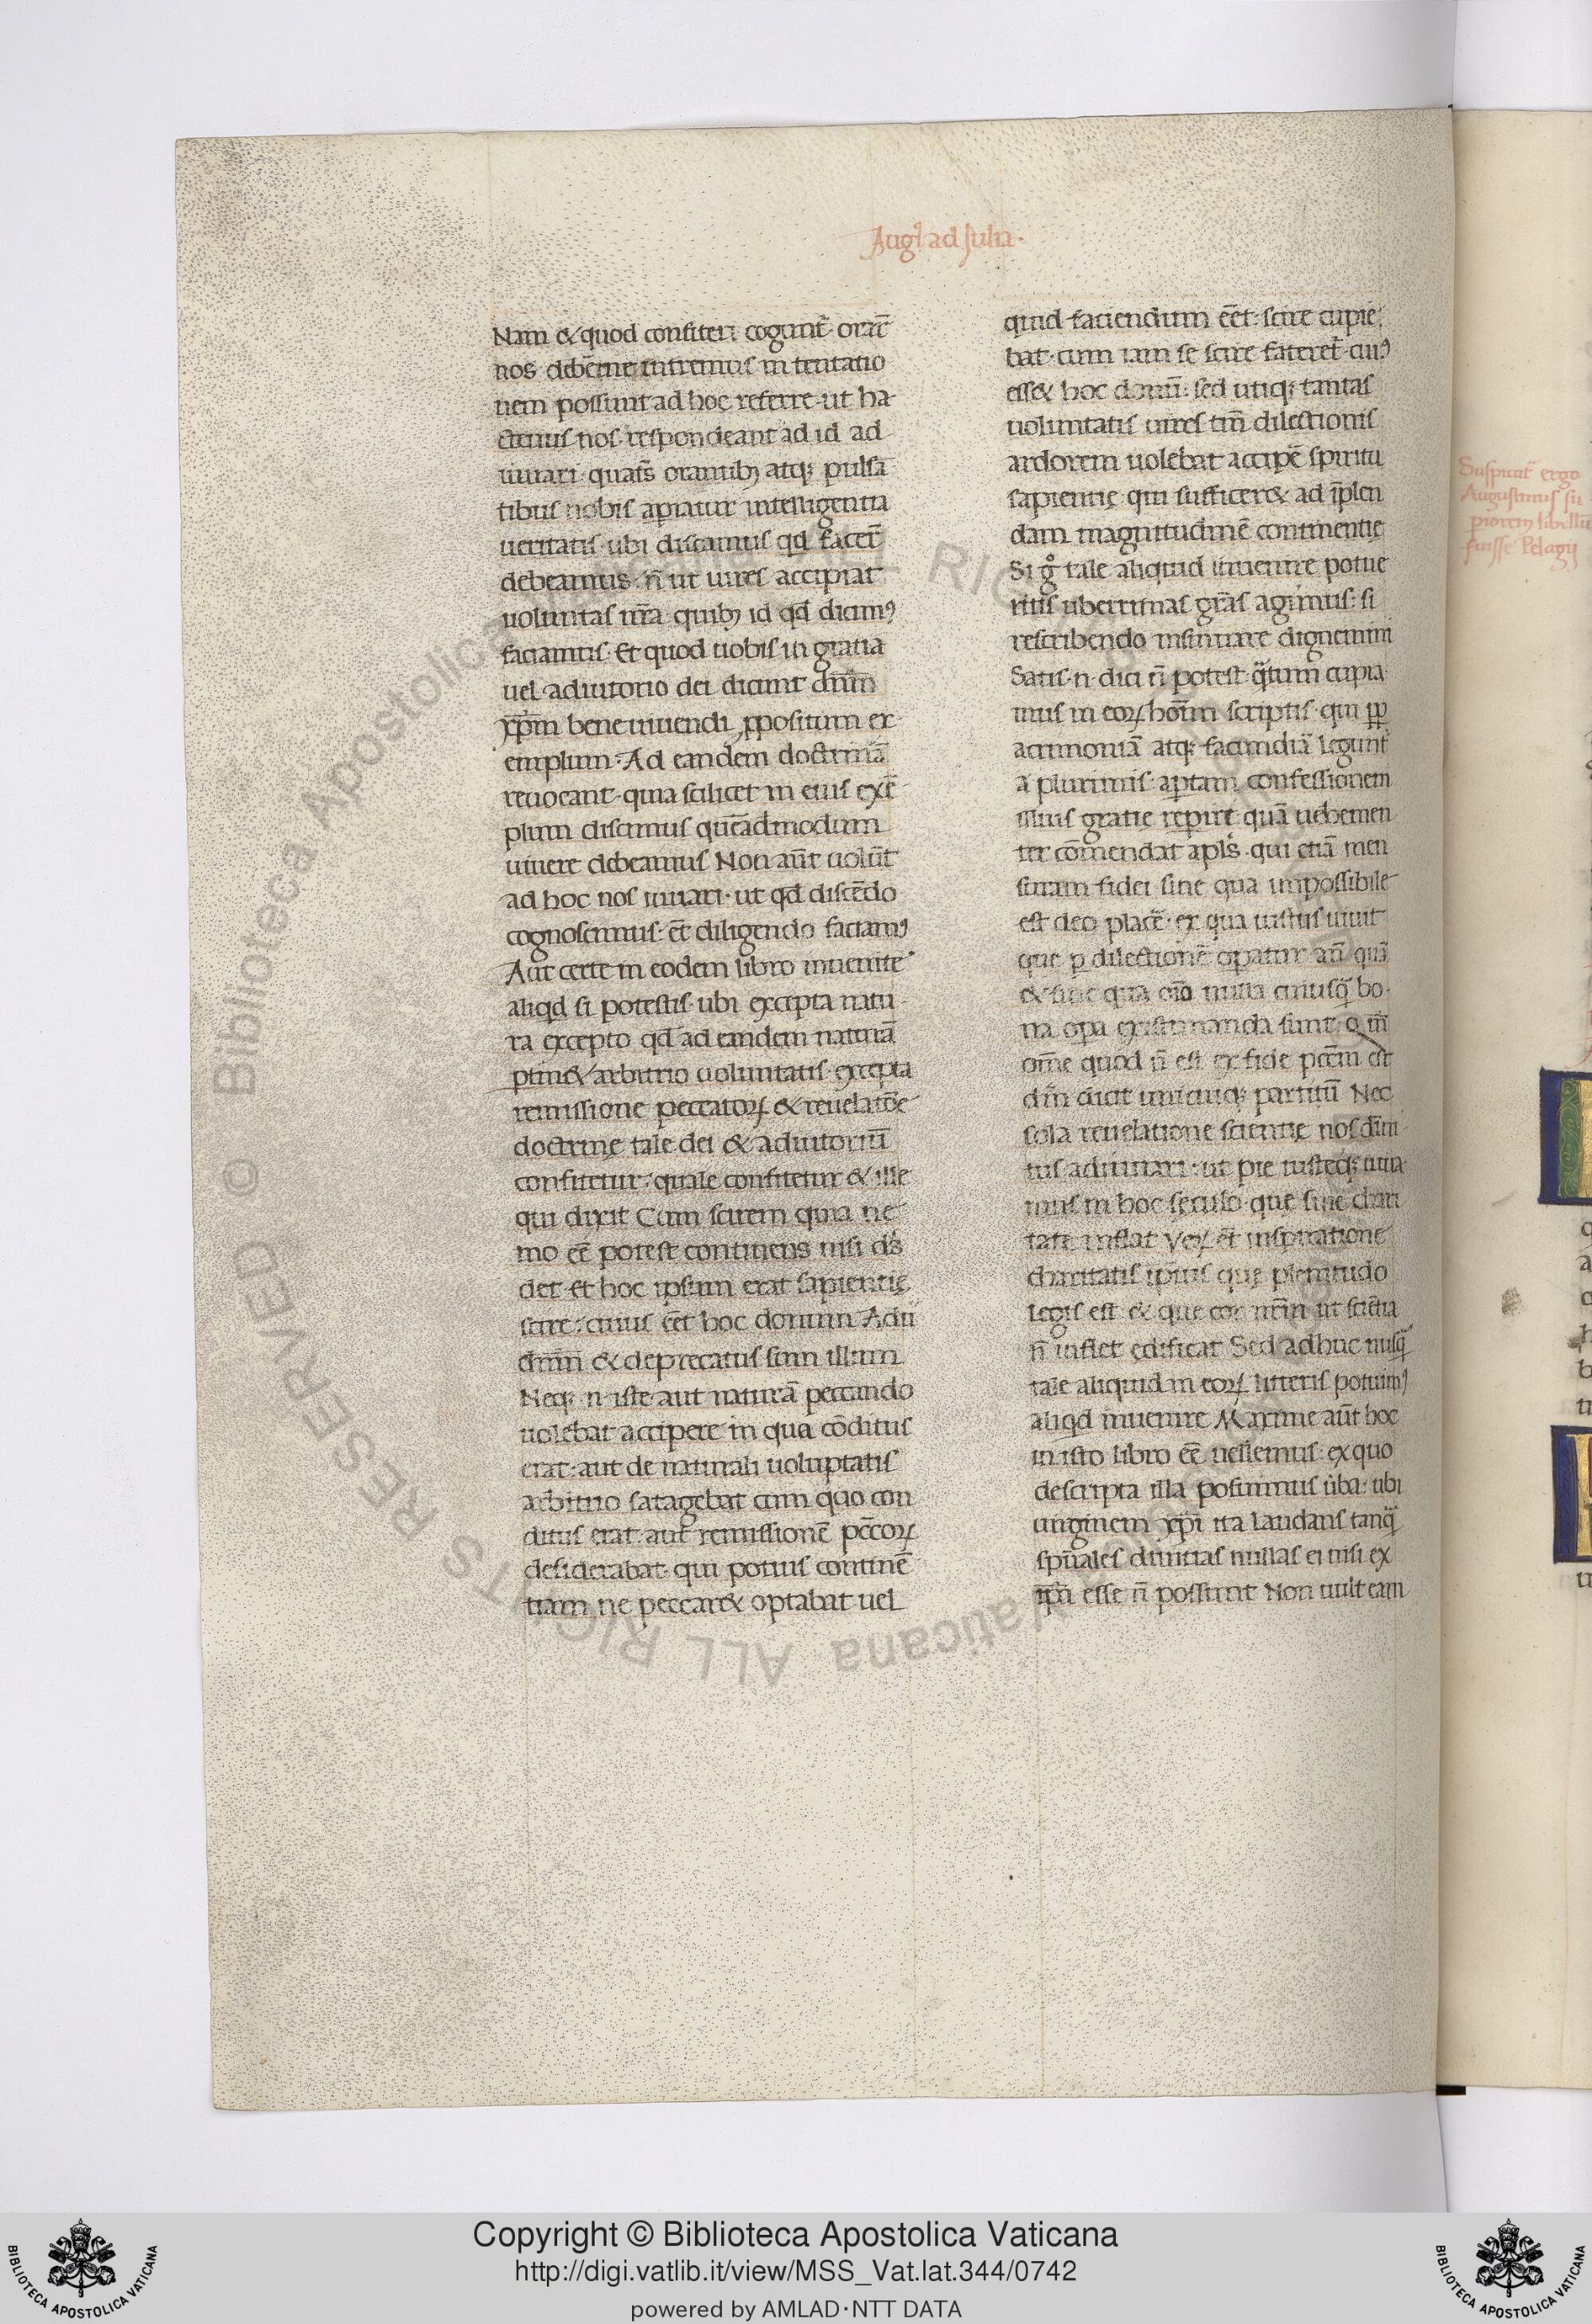 Augꝰ ad Julia·
Nam & quod confiteri cogunt̄ orar̄
nos debēne intremus in tentatio
nem possunt ad hoc referre ut ha
ctenus nos respondeant ad id ad
iuuari quatꝰ orantibꝫ atqꝫ pulsā
tibus nobis apiatur intelligentia
ueritatis ubi discamus qd̄ facer̄
debeamus n̄ ut uires accipiat
uoluntas nr̄a quibꝫ id qd̄ dicimꝰ
faciamus Et quod uobis in gratia
uel adiutorio dei dicunt dn̄m
xp̄m bene uiuendi ꝓpositum ex
emplum Ad eandem doctrinā
reuocant quia scilicet in eius exē
plum discimus quēadmodum
uiuere debeamus Non aūt uolūt
ad hoc nos iuuari ut qd̄ discēdo
cognoscimus ēt diligendo faciamꝰ
Aut certe in eodem libro inuenite
aliqd si potestis ubi excepta natu
ra excepto qd̄ ad eandem naturā
ptin& arbitrio uoluntatis excepta
remissione peccatoꝝ & reuelatōe
doctrine tale dei & adiutoriū
confitetur quale confitetur & ille
qui dixit Cum scirem quia ne
mo eē potest continens nisi ds̄
det et hoc ipsum erat sapientię
scire cuius eēt hoc donum Adii
dn̄m & deprecatus sum illum
Neqꝫ n iste aut naturā peccando
uolebat accipere in qua cōditus
erat aut de naturali uoluptatis
arbitrio satagebat cum quo con
ditus erat aut remissionē pēcoꝝ
desiderabat qui potius continē
tiam ne peccar& optabat uel
quid faciendum eēt scire cupie
bat cum iam se scire fateret̄ cuiꝰ
ess& hoc donū sed utiqꝫ tantas
uoluntatis uires tm̄ dilectionis
ardorem uolebat accipē spiritu
sapientię qui suffícer& ad īplen
dam magnitudinē continentię
Si gͦ tale aliquid inuenire potue
ritis uberrimas grās agimus si
rescribendo insinuare dignemini
Satis n dici n̄ potest qͣtum cupia
mus in eoꝝ hoīm scriptis qui ꝓp
acrimoniā atqꝫ facundiā legunt̄
a plurimis aptam confessionem
illius gratie repire quā uehemen
ter cōmendat apl̄s qui etiā men
suram fidei sine qua impossibile
est deo placē ex qua iustus uiuit
que p dilectionē opatur an̄ quā
& sine qua oīo nulla cuiusq̄ bo
na opa existimanda sunt qm̄
omē quod n̄ est ex fide pcc̄m est
dm̄ dicit unicuiqꝫ partitū Nec
sola reuelatione scientię nos diui
tus adiuuari ut pie iusteqꝫ uiua
mus in hoc sęculo que sine chari
tate inflat Veꝝ ēt inspiratione
charitatis ipīus quę plenitudo
legis est & que cor nr̄m ut sciētia
n̄ inflet edificat Sed adhuc nusq̄
tale aliquid in eoꝝ litteris potuimꝰ
aliqd inuenire Maxime aūt hoc
in isto libro eē uellemus ex quo
descripta illa posuimus ūba ubi
uirginem xp̄i ita laudans tanq̄
spūales diuitias nullas ei nisi ex
ip̄a esse n̄ possunt Non uult eam
Suspicat̄ ergo
Augustinus su
piorem libellū
fuisse Pelagij
© Biblioteca Apostolica Vaticana ALL RIGHTS RESERVED
Copyright © Biblioteca Apostolica Vaticana
http://digi.vatlib.it/view/MSS_Vat.lat.344/0742
powered by AMLAD·NTT DATA
BIBLIOTECA APOSTOLICA VATICANA
BIBLIOTECA APOSTOLICA VATICANA